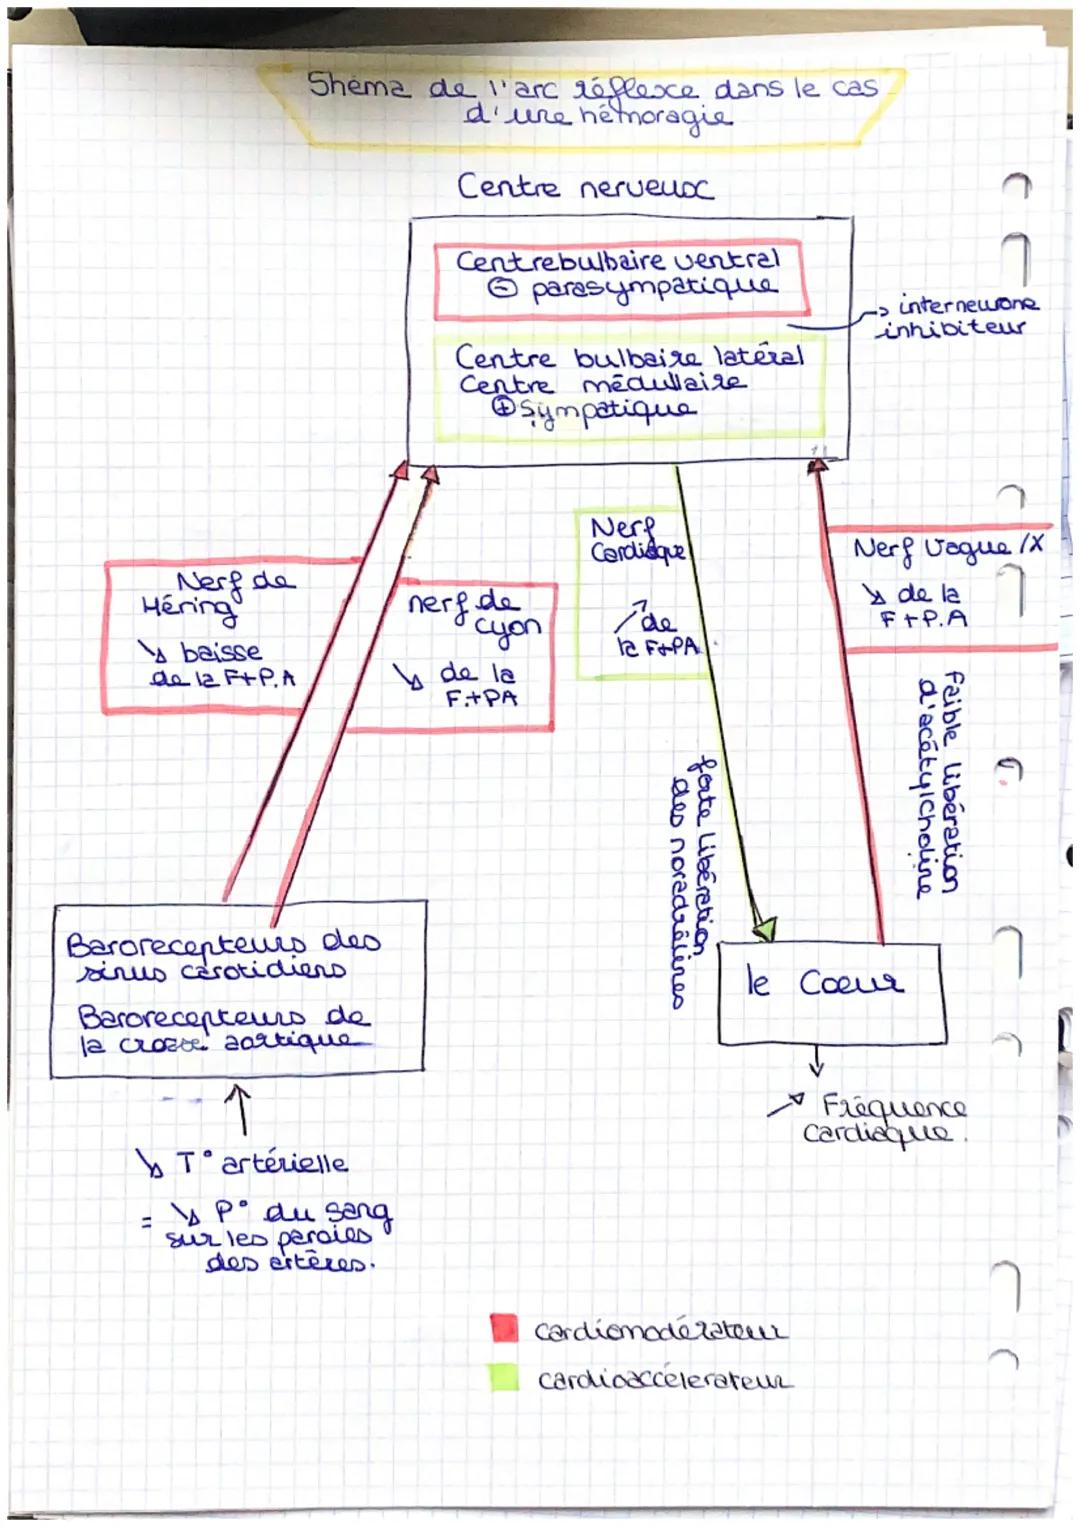 Shéma de l'arc réflexe dans le cas
d'une hémoragie
Centre nerveux
Centrebulbaire ventral
⊖ parasympatique
→ interneurone
inhibiteur
Centre bulbaire latéral
Centre médullaire
⊕ sympatique
Nerf de
Héring
↘ baisse
de la F+P.A
nerf de
cyon
↘ de la
F.+PA
Nerf
Cardiaque
↗ de
la F+PA
Nerf Vague /X
↘ de la
F+P.A
forte libération
des noradrélines
faible libération
d'acétylcholine
Barorecepteurs des
sinus carotidiens
Barorecepteurs de
la crosse aortique
le Coeur
↗ Fréquence
cardiaque.
↘ T° artérielle
= ↘ P° du sang
sur les paroies
des artères.
cardiomodérateur
cardioaccélerateur